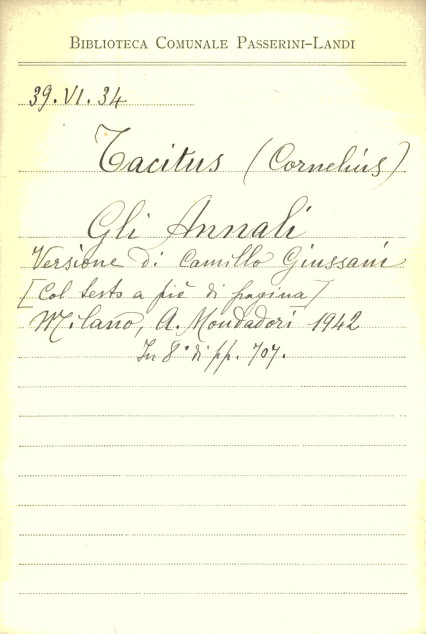 BIBLIOTECA COMUNALE PASSERINI-LANDI
39.VI.34
Tacitus (Cornelius)
Gli Annali
Versione di Camillo Giussani
[Col testo a piè di pagina]
Milano, A. Mondadori 1942
In 8° di pp. 707.